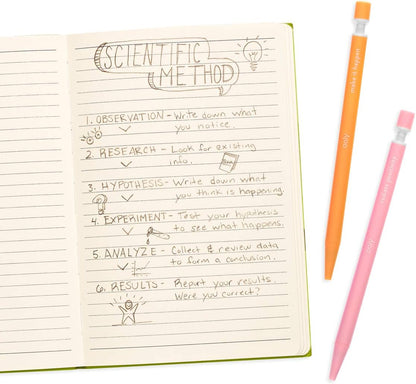 SCIENTIFIC
METHOD
1. OBSERVATION - Write down what
you notice.
2. RESEARCH - Look for existing
info.
3. HYPOTHESIS - Write down what
you think is happening.
4. EXPERIMENT - Test your hypothesis
to see what happens.
5. ANALYZE - Collect & review data
to form a conclusion.
6. RESULTS - Report your results.
Were you correct?